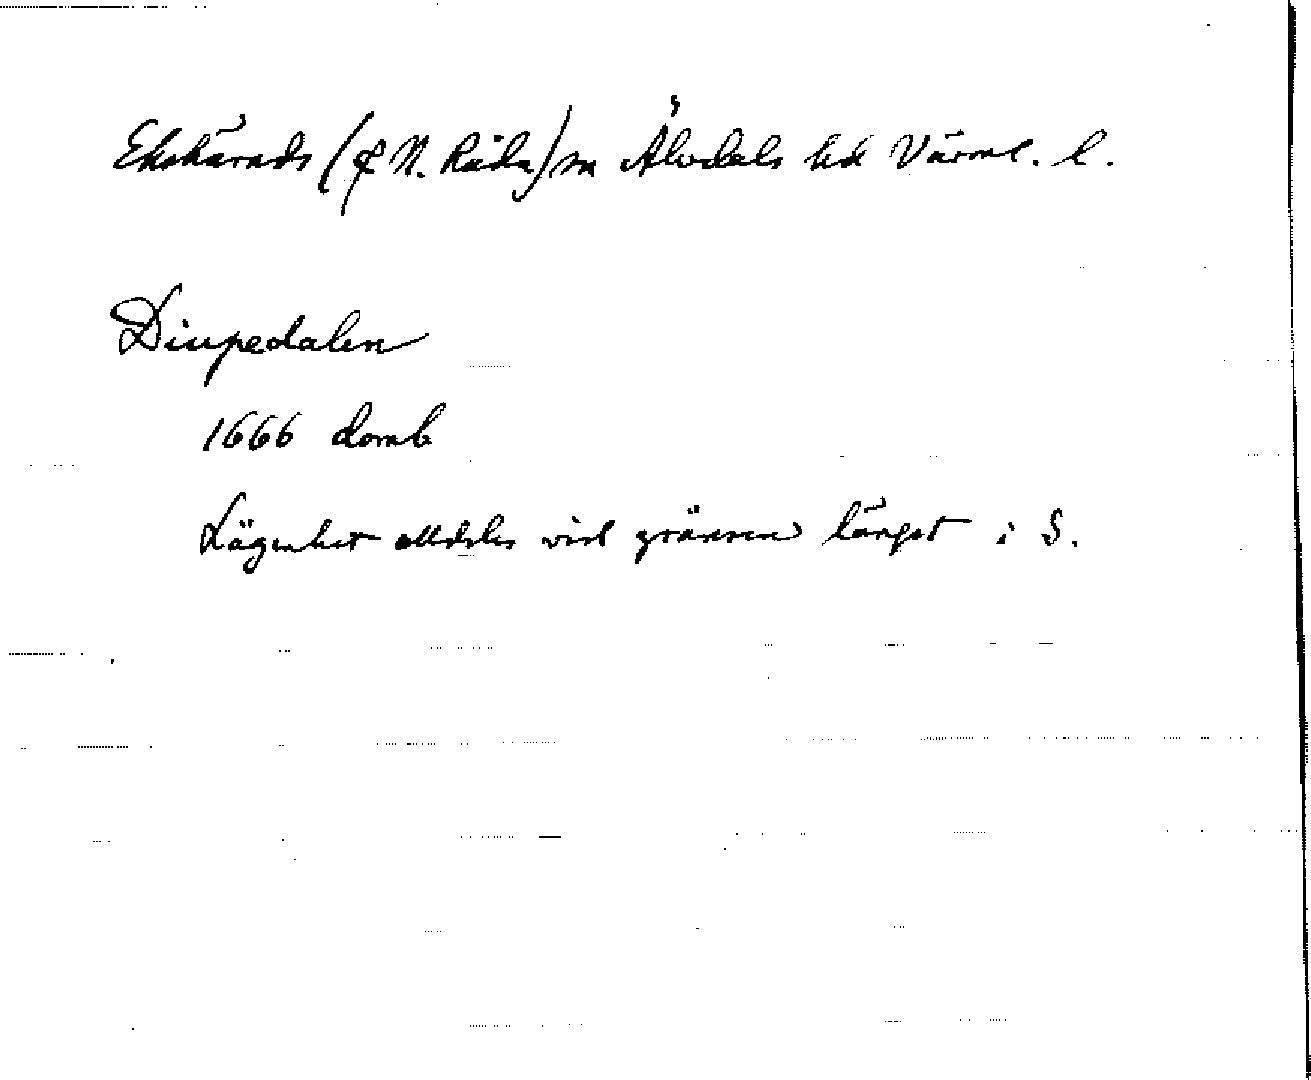 Ekshärads (& N. Råda) sn Älvdals hd Värml. l.
Diupedalen
1666 domb
Lägenhet alldeles vid gränsen längst i S.